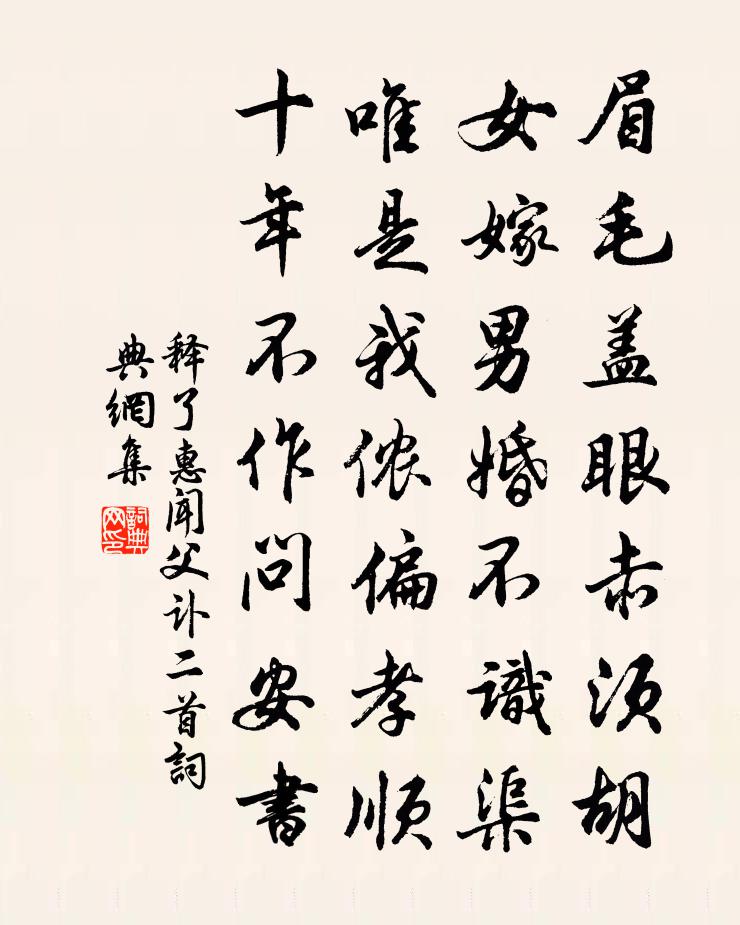 眉毛盖眼赤须胡
女嫁男婚不識渠
唯是我侬偏孝顺
十年不作问安書
释了惠闻父讣二首詞
典網集
詞典
网印